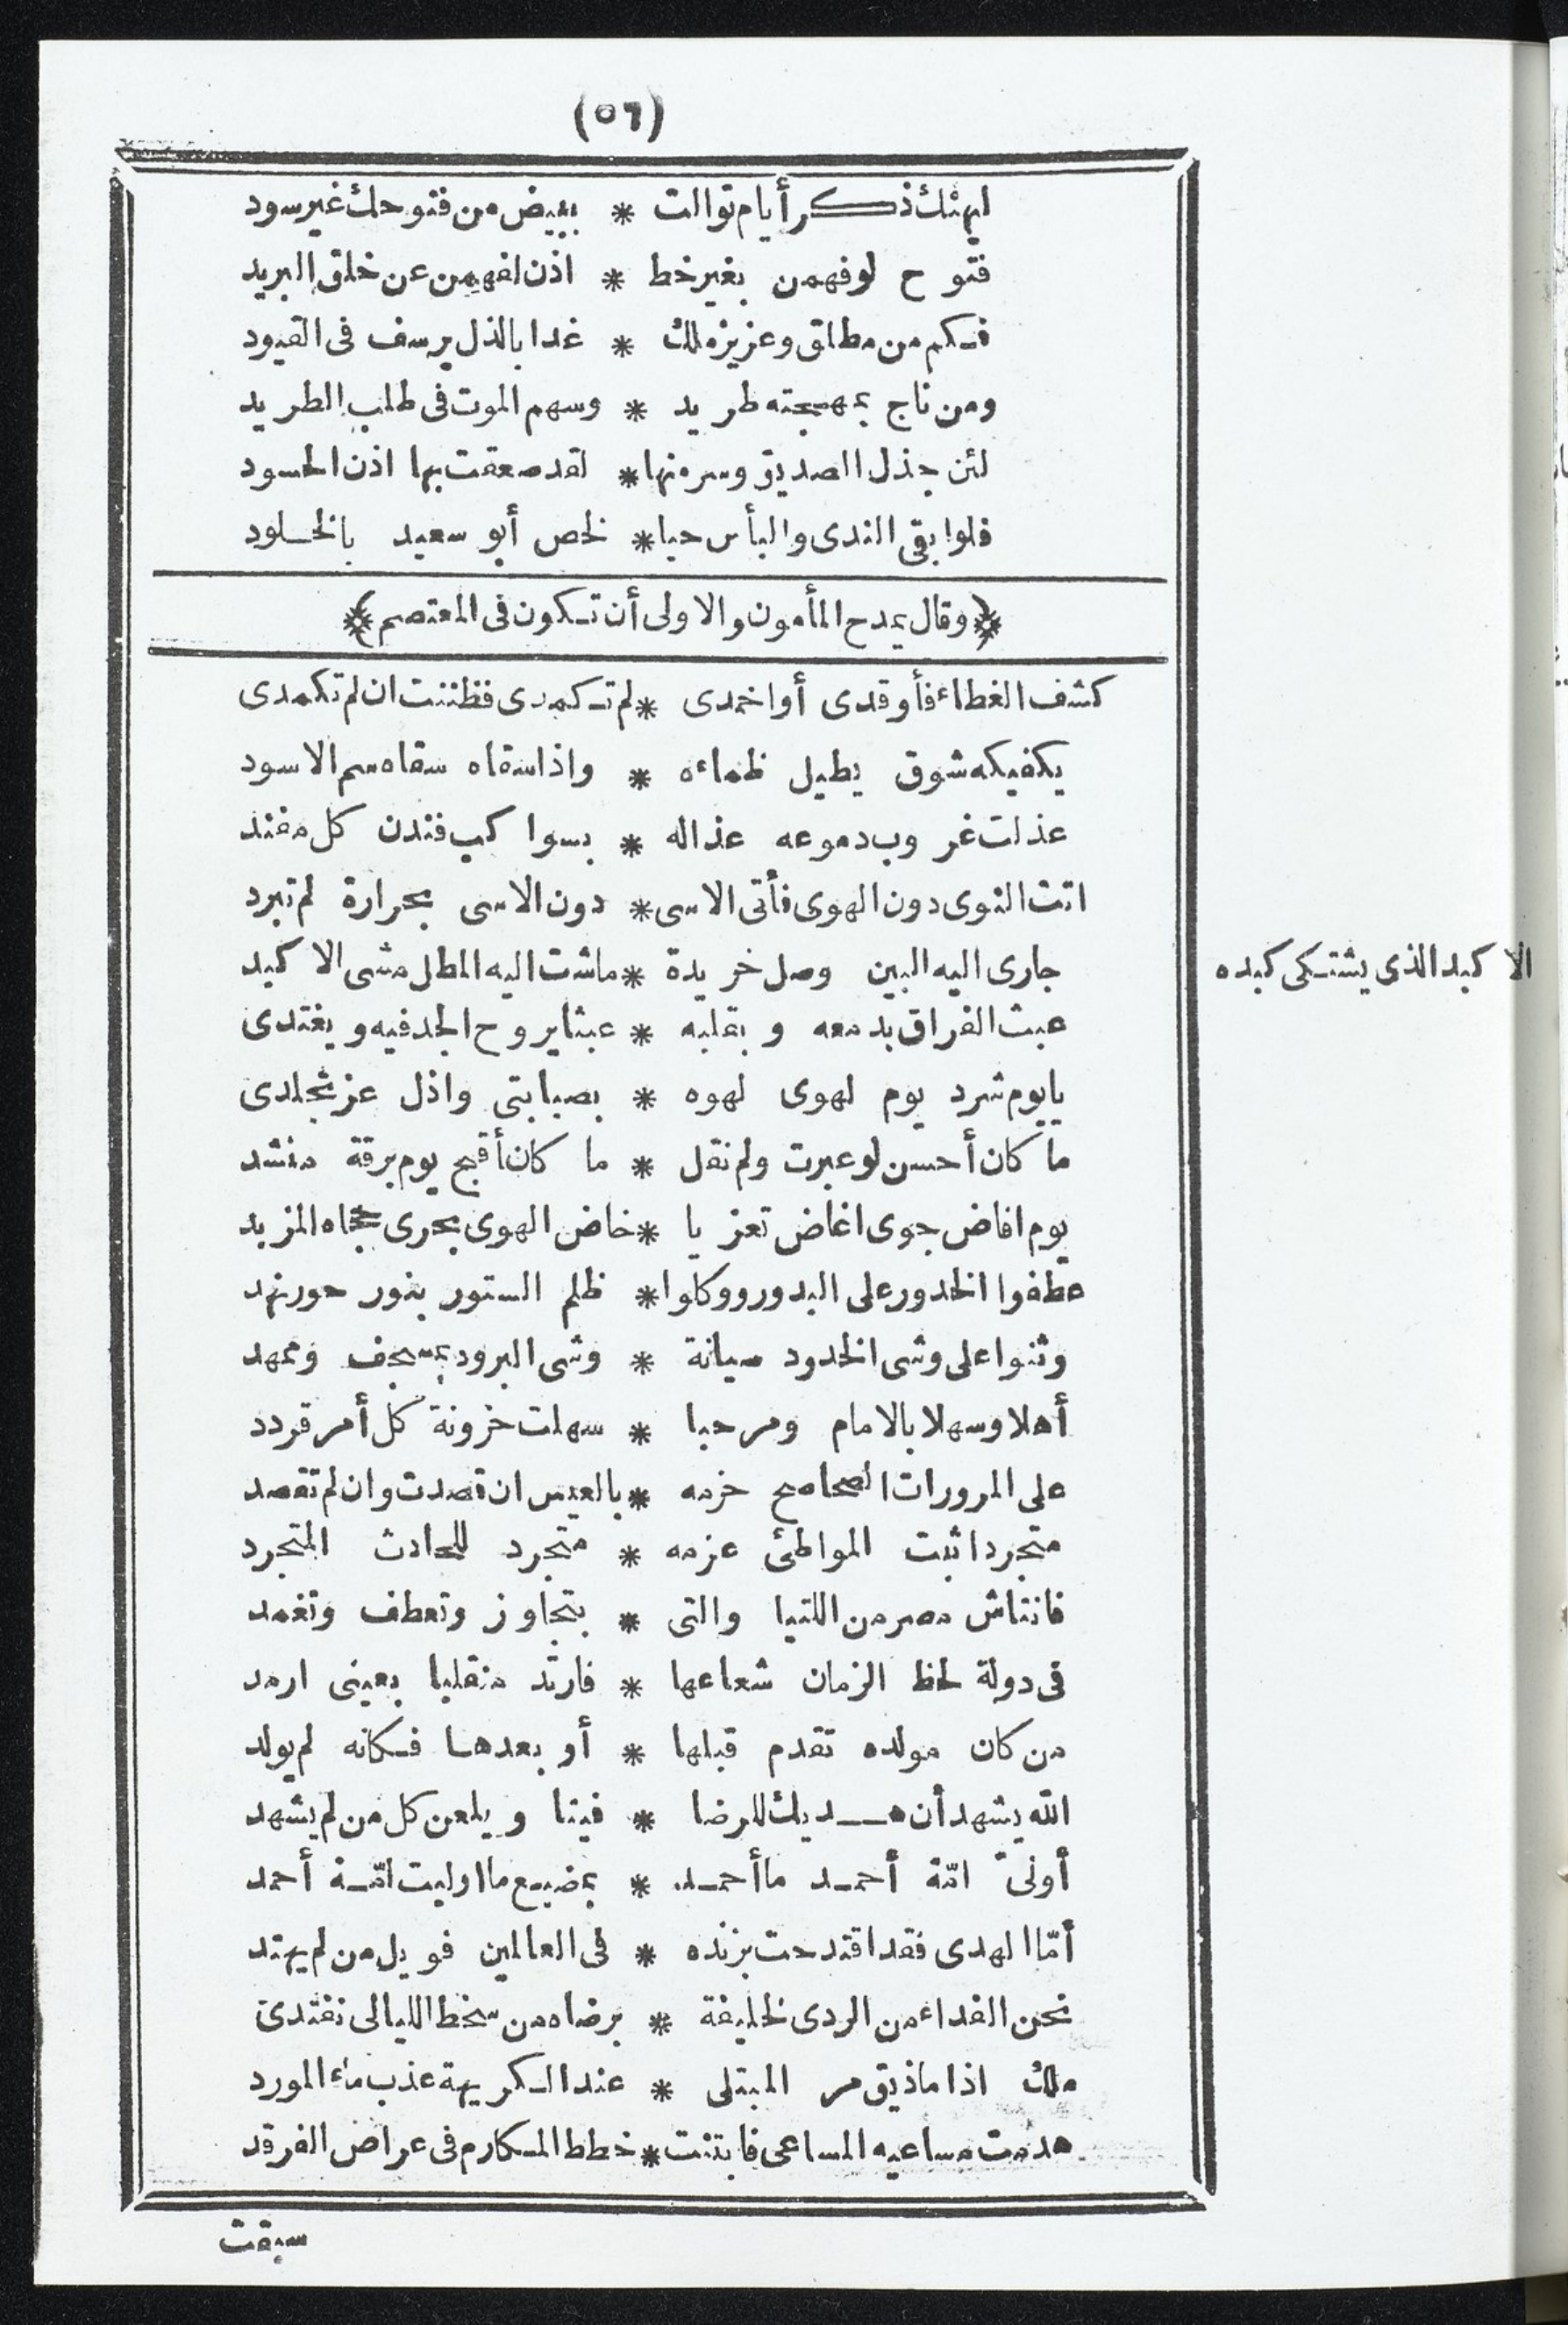 (٥٦)
ليهنئك ذكر أيام توالت * ببيض من فتوحك غير سود
فتوح لوفهمن بغير خط * اذن لفهمن عن خلق البريد
فكم من مطلق وعزيز ملك * غدا بالذل يرسف فى القيود
ومن ناج بمهجته طريد * وسهم الموت فى طلب الطريد
لئن جذل الصديق وسر منها * لقد صعقت بها اذن الحسود
فلوا بقى الندى والبأس حيا * لخص أبو سعيد بالخلود
﴿وقال يمدح المأمون والاولى أن تكون فى المعتصم﴾
كشف الغطاء فأوقدى أواخمدى * لم تكمدى فظننت ان لم تكمدى
يكفيكه شوق يطيل ظماءه * واذا سقاه سقاه سم الاسود
عذلت غروب دموعه عذاله * بسواكب فندن كل مفند
اتت النوى دون الهوى فأتى الاسى * دون الاسى بحرارة لم تبرد
جارى اليه البين وصل خريدة * ماشت اليه المطل مشى الاكبد
الاكبد الذى يشتكى كبده
عبث الفراق بدمعه وبقلبه * عبثا يروح الجد فيه ويغتدى
يايوم شرد يوم لهوى لهوه * بصبابتى واذل عز تجلدى
ما كان أحسن لو عبرت ولم نقل * ما كان أقبح يوم برقة منشد
يوم افاض جوى اغاض تعزيا * خاض الهوى بحرى حجاه المزبد
عطفوا الخدور على البدور ووكلوا * ظلم الستور بنور حور نهد
وثنوا على وشى الخدود صيانة * وشى البرود بمسجف وممهد
أهلا وسهلا بالامام ومرحبا * سهلت خزونة كل أمر قردد
على المرورات الصحاصح خزمه * بالعيس ان قصدت وان لم تقصد
متجردا ثبت المواطئ عزمه * متجرد للحادث المتجرد
فانتاش مصر من اللتيا والتى * بتجاوز وتعطف وتغمد
فى دولة لحظ الزمان شعاعها * فارتد منقلبا بعينى ارمد
من كان مولده تقدم قبلها * أو بعدها فكانه لم يولد
الله يشهد أن هديك للرضا * فينا ويلعن كل من لم يشهد
أولىّ امّة أحمد ما أحمد * بمضيع ما اوليت امّة أحمد
أمّا الهدى فقد اقتدحت بزنده * فى العالمين فويل من لم يهتد
نحن الفداء من الردى لخليفة * برضاه من سخط الليالى نفتدى
ملك اذا ماذيق مر المبتلى * عند الكريهة عذب ماء المورد
هدمت مساعيه المساعى فابتنت * خطط المكارم فى عراض الفرقد
سبقت